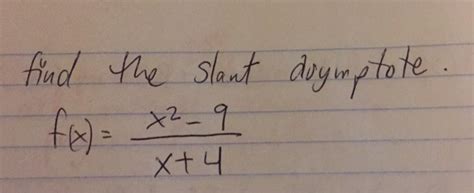 find the slant asymptote.
f(x) = x² - 9
x + 4